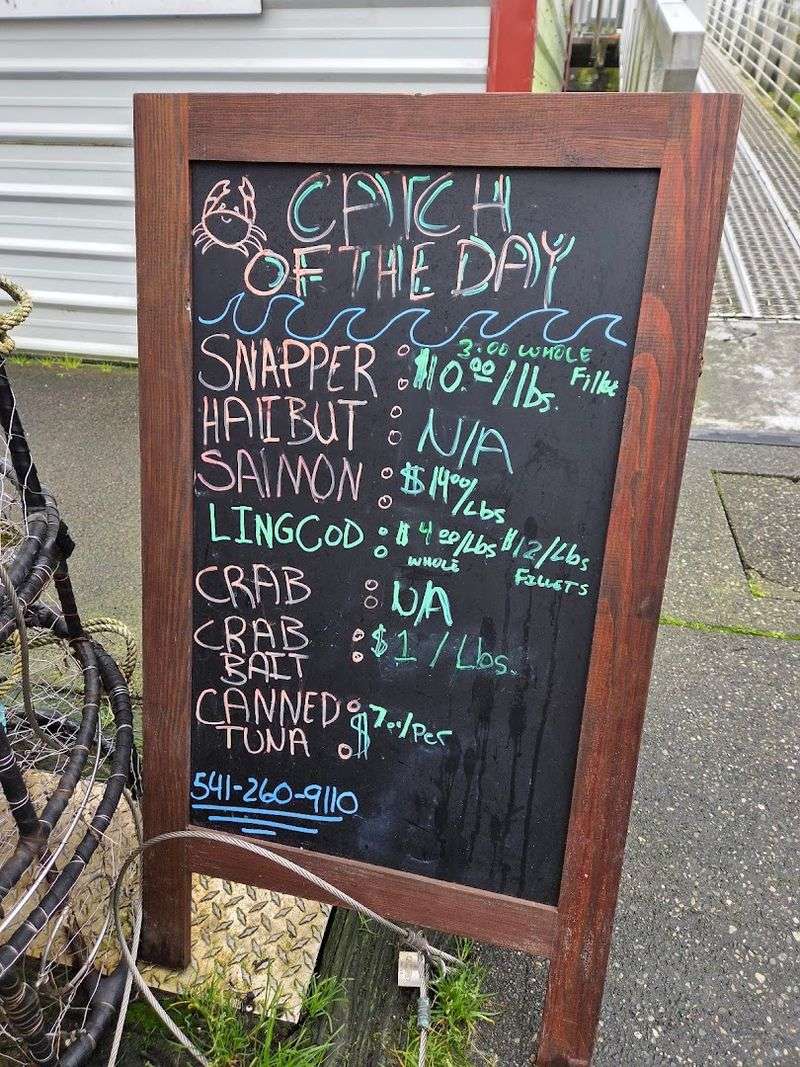 CATCH
OF THE DAY
SNAPPER : $10.00/lbs. 3.00 WHOLE Fillet
HALIBUT : N/A
SALMON : $14.00/Lbs
LINGCOD : $4.00/Lbs WHOLE $12/Lbs FILLETS
CRAB : N/A
CRAB BAIT : $1/Lbs.
CANNED TUNA : $7.00/Per
541-260-9110